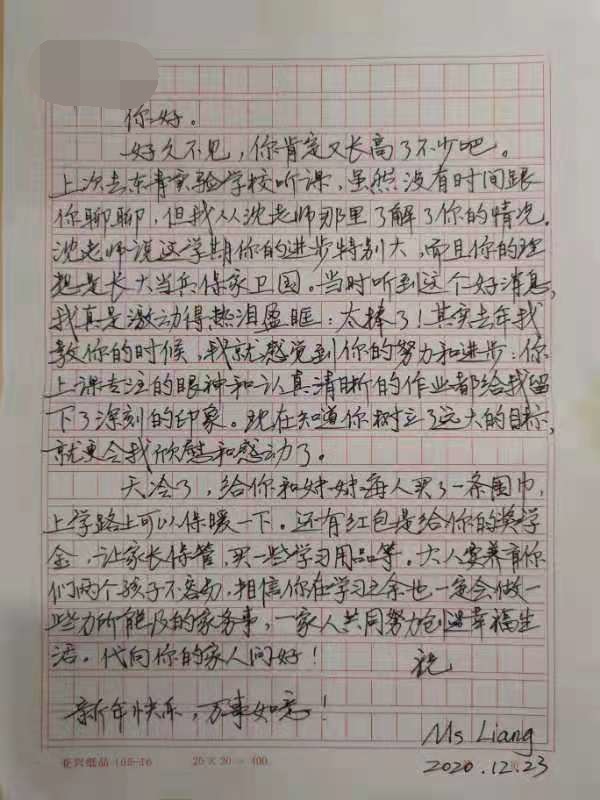 你好。
好久不见，你肯定又长高了不少吧。
上次去东青实验学校听课，虽然没有时间跟
你聊聊，但我从沈老师那里了解了你的情况。
沈老师说这学期你的进步特别大，而且你的理
想是长大当兵保家卫国。当时听到这个好消息，
我真是激动得热泪盈眶：太棒了！其实去年我
教你的时候，我就感觉到你的努力和进步：你
上课专注的眼神和认真清晰的作业都给我留
下了深刻的印象。现在知道你树立了远大的目标，
就更令我欣慰和感动了。
天冷了，给你和妹妹每人买了一条围巾，
上学路上可以保暖一下。还有红包是给你的奖学
金，让家长保管，买一些学习用品等。大人要养育你
们两个孩子不容易，相信你在学习之余也一定会做一
些力所能及的家务事，一家人共同努力创造幸福生
活。代向你的家人问好！ 祝
新年快乐，万事如意！
Ms Liang
2020.12.23
纸品 16S-16 20×20=400